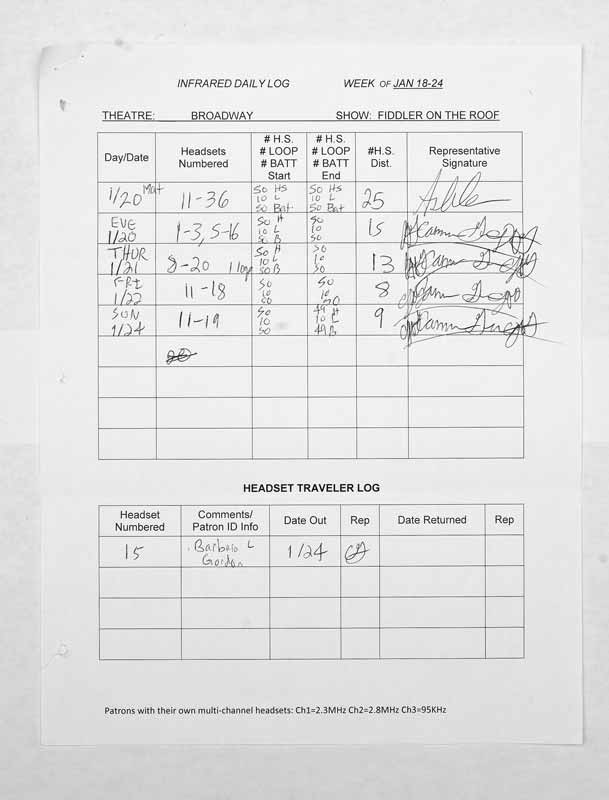 INFRARED DAILY LOG WEEK OF JAN 18-24
THEATRE: BROADWAY SHOW: FIDDLER ON THE ROOF
Day/Date Headsets Numbered # H.S. # LOOP # BATT Start # H.S. # LOOP # BATT End #H.S. Dist. Representative Signature
1/20 Mat 11-36 50 HS 10 L 50 Bat 50 HS 10 L 50 Bat 25
EVE 1/20 1-3, 5-16 50 H 10 L 50 B 50 10 50 15
THUR 1/21 8-20 1 loop 50 H 10 L 50 B 50 10 50 13
FRI 1/22 11-18 50 10 50 50 10 50 8
SUN 1/24 11-19 50 10 50 49 H 10 L 49 B 9
HEADSET TRAVELER LOG
Headset Numbered Comments/ Patron ID Info Date Out Rep Date Returned Rep
15 L Gordon 1/24
Patrons with their own multi-channel headsets: Ch1=2.3MHz Ch2=2.8MHz Ch3=95KHz